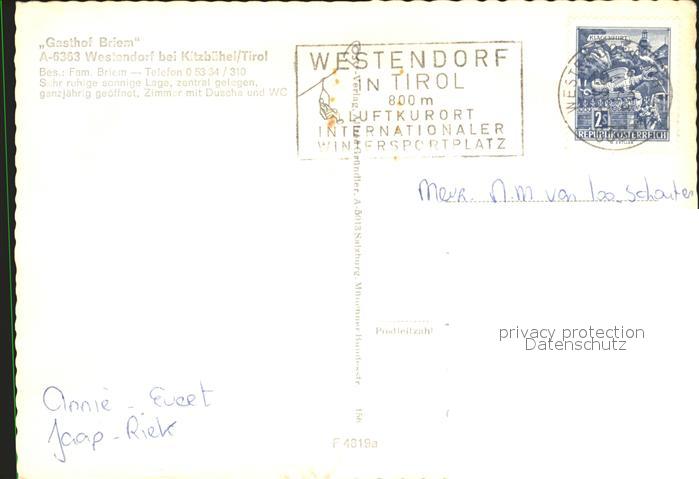 „Gasthof Briem"
A-6363 Westendorf bei Kitzbühel/Tirol
Bes.: Fam. Briem — Telefon 0 53 34 / 310
Sehr ruhige sonnige Lage, zentral gelegen,
ganzjährig geöffnet, Zimmer mit Dusche und WC
WESTENDORF
IN TIROL
800m
LUFTKURORT
INTERNATIONALER
WINTERSPORTPLATZ
KLAGENFURT
2S
REPUBLIK ÖSTERREICH
WESTEN
Mevr. M.M van Loo-Schouten
Verlag, A-5013 Salzburg, Münchner Bundesstr. 156
Postleitzahl
privacy protection
Datenschutz
Annie - Evert
Jaap - Riek
F 4819a